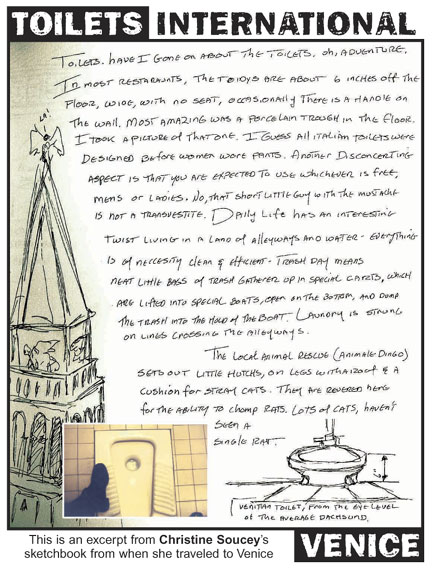 TOILETS INTERNATIONAL
TOILETS. HAVE I GONE ON ABOUT THE TOILETS. OH, ADVENTURE.
IN MOST RESTARAUNTS, THE TOIDYS ARE ABOUT 6 INCHES OFF THE
FLOOR, WIDE, WITH NO SEAT, OCCASIONALLY THERE IS A HANDLE ON
THE WALL. MOST AMAZING WAS A PORCELAIN TROUGH IN THE FLOOR.
I TOOK A PICTURE OF THAT ONE. I GUESS ALL ITALIAN TOILETS WERE
DESIGNED BEFORE WOMEN WORE PANTS. ANOTHER DISCONCERTING
ASPECT IS THAT YOU ARE EXPECTED TO USE WHICHEVER IS FREE,
MENS OR LADIES. NO, THAT SHORT LITTLE GUY WITH THE MUSTACHE
IS NOT A TRANSVESTITE. DAILY LIFE HAS AN INTERESTING
TWIST LIVING IN A LAND OF ALLEYWAYS AND WATER - EVERYTHING
IS OF NECCESITY CLEAN & EFFICIENT - TRASH DAY MEANS
NEAT LITTLE BAGS OF TRASH GATHERED UP IN SPECIAL CARTS, WHICH
ARE LIFTED INTO SPECIAL BOATS, OPEN ON THE BOTTOM, AND DUMP
THE TRASH INTO THE HOLD OF THE BOAT. LAUNDRY IS STRUNG
ON LINES CROSSING THE ALLEYWAYS.
THE LOCAL ANIMAL RESCUE (ANIMALE DINGO)
SETS OUT LITTLE HUTCHS, ON LEGS WITH A ROOF & A
CUSHION FOR STRAY CATS. THEY ARE REVERED HERE
FOR THE ABILITY TO CHOMP RATS. LOTS OF CATS, HAVEN'T
SEEN A
SINGLE RAT.
VENITIAN TOILET, FROM THE EYE LEVEL
OF THE AVERAGE DACHSUND.
This is an excerpt from Christine Soucey's
sketchbook from when she traveled to Venice
VENICE